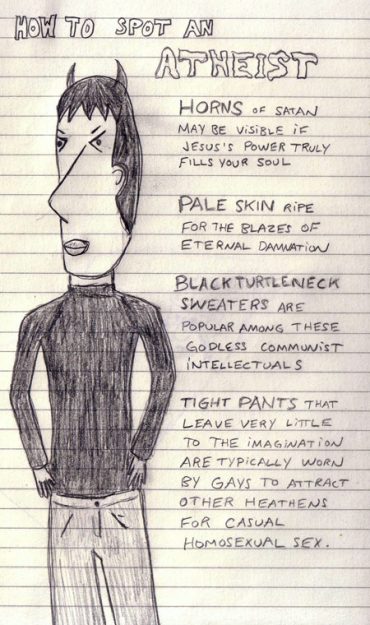 HOW TO SPOT AN
ATHEIST
HORNS OF SATAN
MAY BE VISIBLE IF
JESUS'S POWER TRULY
FILLS YOUR SOUL
PALE SKIN RIPE
FOR THE BLAZES OF
ETERNAL DAMNATION
BLACK TURTLENECK
SWEATERS ARE
POPULAR AMONG THESE
GODLESS COMMUNIST
INTELLECTUALS
TIGHT PANTS THAT
LEAVE VERY LITTLE
TO THE IMAGINATION
ARE TYPICALLY WORN
BY GAYS TO ATTRACT
OTHER HEATHENS
FOR CASUAL
HOMOSEXUAL SEX.